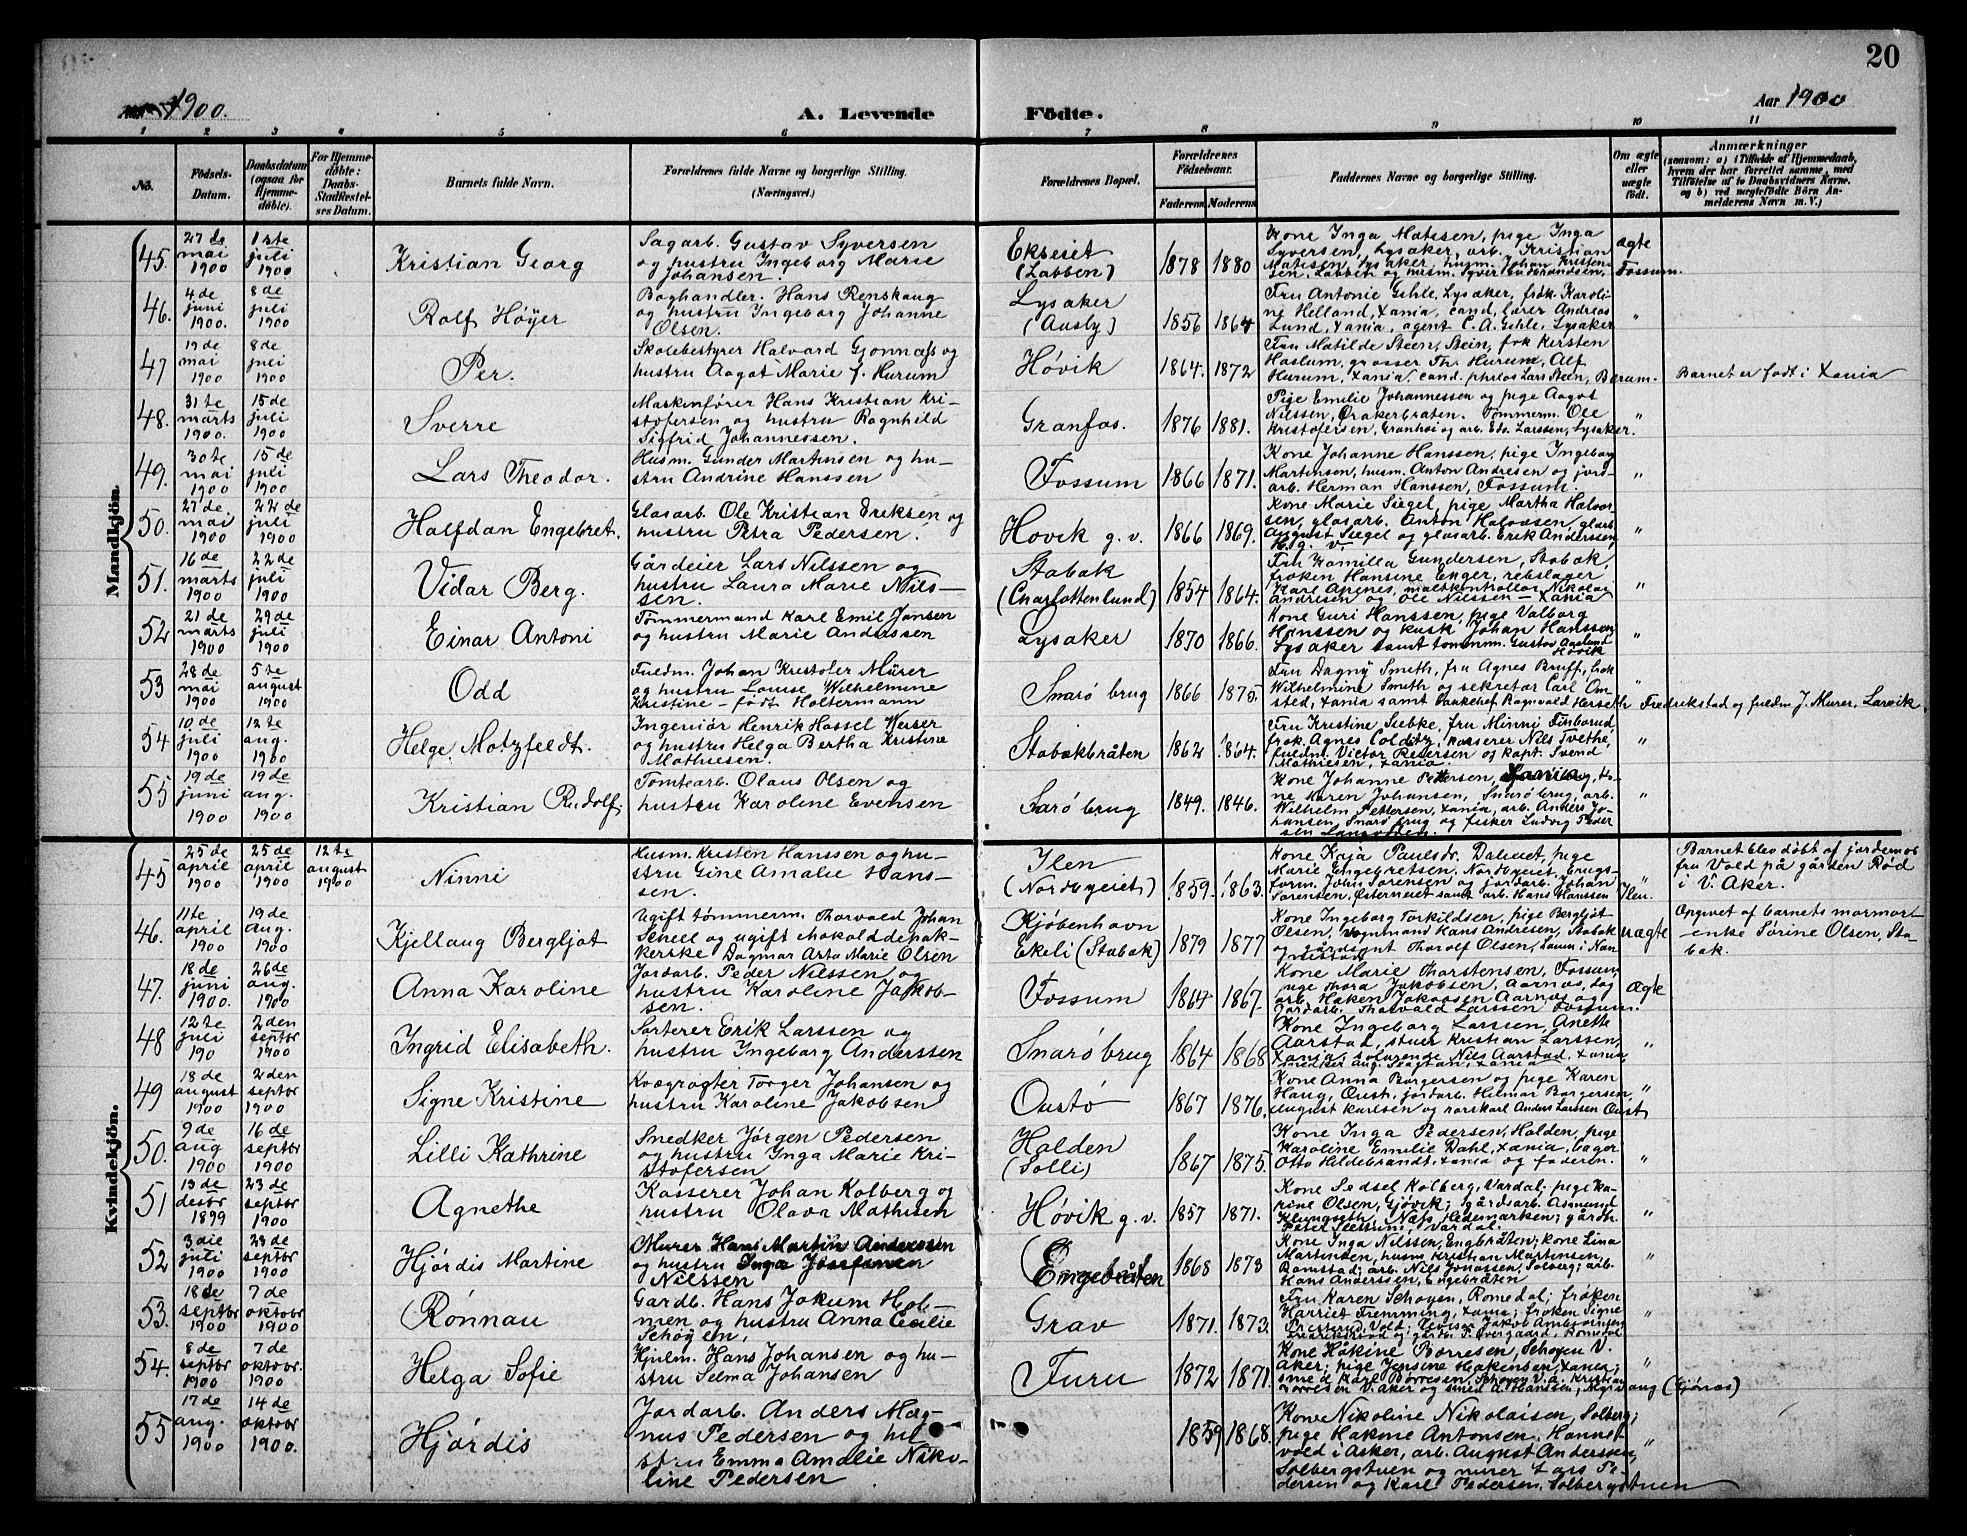 20
Aar 1900.
A. Levende Födte.
Aar 1900
1 2 3 4 5 6 7 8 9 10 11
No.
Födsels-Datum.
Daabsdatum (ogsaa for Hjemme-döbte).
For Hjemme-döbte: Daabs-Stadfæstel-ses Datum.
Barnets fulde Navn.
Forældrenes fulde Navne og borgerlige Stilling. (Næringsvei.)
Forældrenes Bopæl.
Forældrenes Födselsaar.
Faderens. Moderens.
Faddernes Navne og borgerlige Stilling.
Om ægte eller uægte födt.
Anmærkninger
(saasom: a) i Tilfælde af Hjemmedaab, hvem der har forrettet samme, med Tilföielse af to Daabsvidners Navne, og b) ved uægtefödte Börn Anmelderens Navn m. V.)
Mandkjön.
45. 27de mai 1900 1ste juli 1900 Kristian Georg
Sagarb. Gustav Syversen
og hustru Ingeborg Marie
Johansen.
Ekseiet (Labben) 1878 1880
Kone Inga Matisen, pige Inga
Syversen, Lysaker, arb. Kristian
ægte
Fossum.
46. 4de juni 1900. 8de juli 1900 Rolf Höyer
Boghandler. Hans Renskaug
og hustru Ingeborg Johanne
Olsen.
Lysaker (Ausby) 1856 1864
Fru Antonie Gihle, Lysaker, frøk. Karoli-
ne Helland, Xania, cand., lærer Andreas
Lund, Xania, agent C. A. Gihle, Lysaker
"
47 19de mai 1900 8de juli 1900 Per.
Skolebestyrer Halvard Gjönnæss og
hustru Aagot Marie f. Hurum
Hövik 1864. 1872
Fru Matilde Steen, Stein, frk Kirsten
Haslum, grosser Th. Hurum, Alf
Hurum, Xania, cand. philos Lars Steen, Bærum.
Barnet er født i Xania
48. 31te marts 1900. 15de juli 1900 Sverre
Maskinfører Hans Kristian Kri-
stofersen og hustru Ragnhild
Sigfrid Johannessen.
Granfos. 1876 1881.
Pige Emilie Johannessen og pige Aagot
Nilssen, Ørakerbråten. Tømmerm. Ole
Kristofersen, Granhøi og arb. Edv. Larssen, Lysaker.
"
49. 30te mai 1900 15de juli 1900 Lars Theodor.
Husm. Gunder Martinsen og hu-
stru Andrine Hanssen
Fossum 1866 1871.
Kone Johanne Hanssen, pige Ingeborg
Martinsen, husm. Anton Andresen og jord-
arb. Herman Hanssen, Fossum.
"
50. 27de mai 1900 22de juli 1900 Halfdan Engebret.
Glasarb. Ole Kristian Eriksen og
hustru Petra Pedersen.
Hövik g. v. 1866 1869.
Kone Marie Siegel, pige Martha Halvor-
sen, glasarb. Anton Halvorsen, glarb.
August Siegel og glasarb. Erik Anderssen,
H. g. v.
"
51. 16de marts 1900 22de juli 1900 Vidar Berg.
Gårdeier Lars Nilssen og
hustru Laura Marie Nils-
sen.
Stabæk (Charlottenlund) 1854 1864.
Fru Kamilla Gundersen, Stabæk,
frøken Hansine Enger, rebslager
Karl Agnes, maltkontrollør Nikolai
Andresen og Ole Nilssen - Xania
"
52 21de marts 1900 29de juli 1900 Einar Antoni
Tømmermand Karl Emil Jonsen
og hustru Marie Anderssen
Lysaker 1870 1866.
Kone Guri Hanssen, pige Valborg
Hanssen og kusk Johan Hanssen,
Lysaker samt tømmerm. Gustav
Hövik
"
53 28de mai 1900 5te august 1900 Odd
Fuldm. Johan Kristofer Mürer
og hustru Louise Wilhelmine
Kristine - født Holtermann
Snarö brug 1866 1875
Fru Dagny Smith, fru Agnes Bruff, frk
Wilhelmine Smith og sekretær Carl Om-
sted, Xania samt bankchef Ragnvald Herseth Fredrikstad og fuldm J. Mürer, Larvik.
"
54 10de juli 1900 12te aug. 1900 Helge Motzfeldt.
Ingeniör Henrik Hassel Wiser
og hustru Helga Bertha Kristine
Mathiesen.
Stabækbråten 1862 1864.
Fru Kristine Siebke, fru Minni Finborud
frøk. Agnes Colditz, kasserer Nils Tvethe,
fuldm. Victor Pedersen og kapt. Svend
Mathiesen, Xania.
"
55 19de juni 1900 19de aug. 1900 Kristian Rudolf
Tomtearb. Olaus Olsen og
hustru Karoline Evensen
Snarö brug 1849. 1846.
Kone Johanne Pettersen, Xania, ko-
ne Karen Johansen, Snarö brug, arb.
Wilhelm Pettersen, Xania, arb. Anders Jo-
hansen, Snarö brug og fisker Ludvig Peder
sen
"
Kvindekjön.
45 25de april 1900 25de april 1900 12te august 1900 Ninni
Husm. Kristen Hanssen og hu-
stru Gine Amalie Hans-
sen.
Ilen (Nordbyeiet) 1859. 1863.
Kone Kaja Paulsdr. Daleiet, pige
Marie Engebretsen, Nordbyeiet, brugs-
form. Johs Sørensen og jordarb. Johan
Sørensen, Østerneiet samt arb. Hans Hanssen Ilen.
"
Barnet blev døbt af jordemor
fru Vold på gården Röd
i V. Aker.
46. 11te april 1900 19de aug. 1900 Kjellaug Bergljot
Ugift tømmerm. Thorvald Johan
Schell og ugift chokoladepak-
kerske Dagmar Asta Marie Olsen
Kjøbenhavn Ekeli (Stabæk) 1879 1877
Kone Ingeborg Torkildsen, pige Bergljot
Olsen, vognmand Hans Andresen, Stabæk
og gårdsgut Thorolf Olsen, Laum i Nan
nestad
uægte
Opgivet af barnets mormor
enke Sørine Olsen, Sta-
bæk.
47. 18de juni 1900. 26de aug. 1900 Anna Karoline
Jordarb. Peder Nilssen og
hustru Karoline Jakob-
sen.
Fossum 1864 1867.
Kone Marie Thorstensen, Fossum,
pige Thora Jakobsen, Aarnæs, sag
arb. Haken Jakobsen Aarnæs og
jordarb. Thorvald Larssen Fossum.
ægte
48 12te juli 190 2den septbr 1900 Ingrid Elisabeth.
Sorterer Erik Larssen og
hustru Ingeborg Anderssen
Snarö brug 1864 1868
Kone Ingeborg Larssen, Anethe
Aarstad, stuer Kristian Larssen,
Xania, søfarende Nils Aarstad, Xania
snedker Aug. Xania
"
49 18de august 1900 2den septbr 1900 Signe Kristine
Kvægrøgter Torger Johansen og
hustru Karoline Jakobsen
Oustö 1867 1876.
Kone Anna Borgersen og pige Karen
Haug, Oust, jordarb. Hilmar Borgersen,
August Karlsen og rorskarl Anders Larssen Oust
"
50. 9de aug 1900 16de septbr 1900 Lilli Kathrine
Snedker Jörgen Pedersen
og hustru Inga Marie Kri-
stofersen
Holden (Solli) 1867 1875.
Kone Inga Pedersen, Holden, pige
Karoline Emilie Dahl, Xania, bager
Otto Hildebrandt, Xania og faderen.
"
51 13de desbr 1899 23de septbr 1900 Agnethe
Kasserer Johan Kolberg og
hustru Olava Mathisen
Hövik g. v. 1857 1871.
Kone Sedsel Kolberg, Vardal; pige Ka-
rine Olsen, Gjövik; gårdsarb. Asmund
Klungseth, Næs, Hedemarken; gårdm.
Vardal.
"
52 3die juli 1900 23de septbr 1900 Hjördis Martine
Murer Hans Martin Anderssen
og hustru Inga Josefine
Nilssen
Engebråten 1868 1873
Kone Inga Nilssen, Engbråten; kone Lina
Martinsen, husm. Kristian Martinsen,
Ramstad; arb. Nils Jonassen, Solberg; arb.
Hans Anderssen, Engebråten
"
53. 18de septbr 1900 7de oktobr 1900 Rönnau
Gardb. Hans Jokum Hol-
men og hustru Anna Cecilie
Schöyen.
Grav 1871. 1873.
Fru Karen Schøyen, Romedal; frøken
Harriet Flemming, Xania; frøken Signe
Pristerud, Vold;
"
54. 8de septbr 1900 7de oktobr. 1900 Helga Sofie
Hjulm. Hans Johansen og hu-
stru Selma Johansen
Furu 1872 1871
Kone Hakine Børresen, Schøyen V.
Aker; pige Jensine Hakensen, Xania;
smed Karl Børresen, Schøyen V. A. Kristian
Børresen V. Aker og smed A. Hanssen,
"
55 17de aug. 1900 14de oktobr 1900. Hjördis
Jordarb. Anders Mag-
nus Pedersen og hu
stru Emma Amalie Niko-
line Pedersen
1859 1868.
Kone Nikoline Nikolaisen, Solberg;
pige Hakine Antonsen, Honne-
vold i Asker, arb. August Anderssen,
Solbergstuen og murer Lars Pe-
dersen og Karl Pedersen, Solbergstuen
"